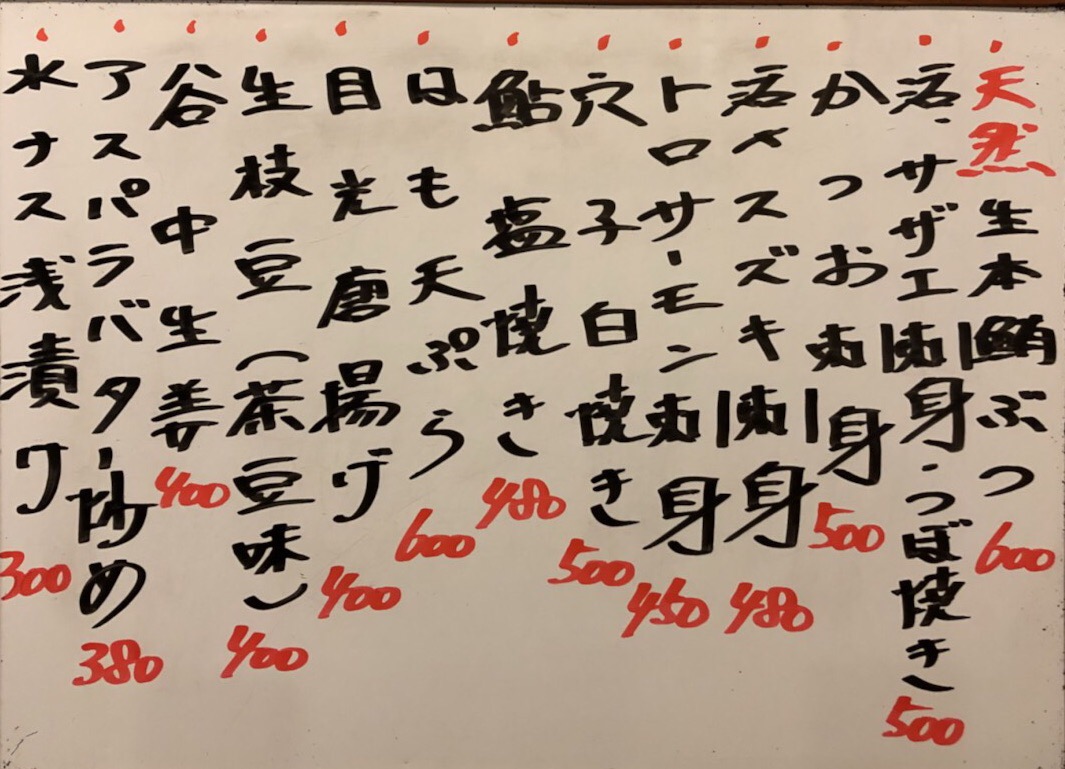 天然生本鮪ぶつ 600
活サザエ刺身・つぼ焼き 500
かつお刺身 500
活〆スズキ刺身 480
トロサーモン刺身 450
穴子白焼き 500
鮎塩焼き 480
はも天ぷら 600
目光唐揚げ 400
生枝豆(茶豆味) 400
谷中生姜 400
アスパラバター炒め 380
水ナス浅漬ケ 300